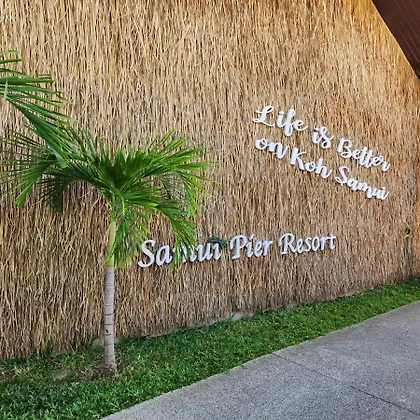 Life is Better
on Koh Samui
Samui Pier Resort